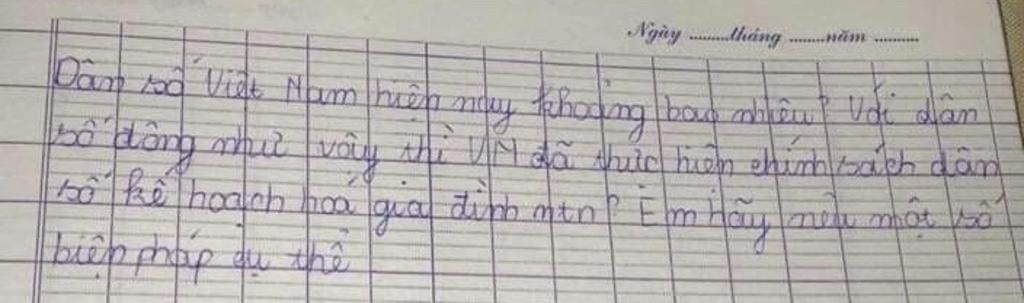 Ngày ........tháng .......năm .........
Dân số Việt Nam hiện nay khoảng bao nhiêu? Với dân
số đông như vậy thì VN đã thực hiện chính sách dân
số kế hoạch hoá gia đình ntn? Em hãy nêu một số
biện pháp cụ thể